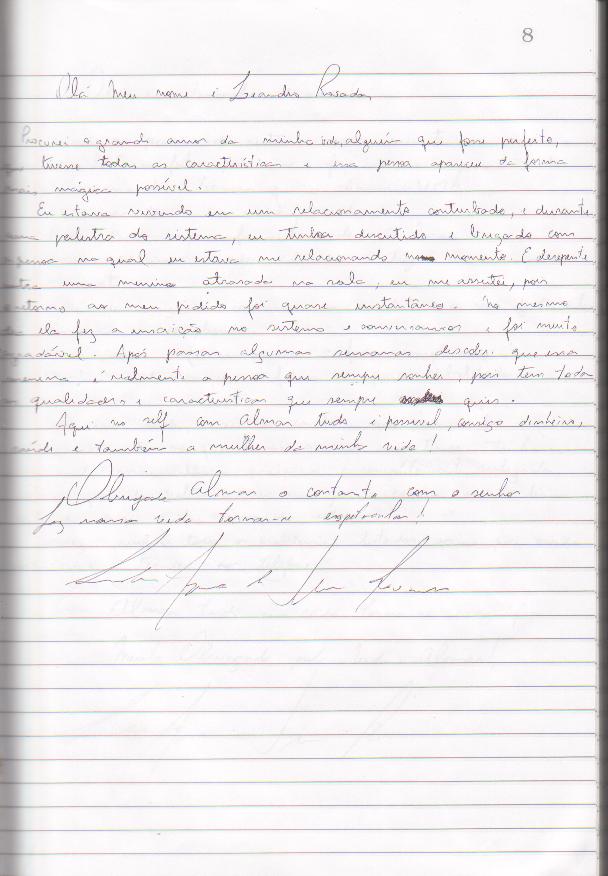 8
Olá Meu nome é Leandro Rosado,
Procurei o grande amor da minha vida, alguém que fosse perfeito,
que tivesse todas as características e essa pessoa apareceu da forma
mais mágica possível.
Eu estava vivendo em um relacionamento conturbado, e durante
uma palestra do sistema, eu tinha discutido e brigado com
a pessoa na qual eu estava me relacionando no momento. E derepente
entra uma menina atrasada na sala, eu me assustei, pois
o retorno ao meu pedido foi quase instantâneo. No mesmo
dia ela fez a inscrição no sistema e conversamos e foi muito
agradável. Após passar algumas semanas descobri que essa
menina é realmente a pessoa que sempre sonhei, pois tem todas
as qualidades e características que sempre quis.
Aqui no self com Almar tudo é possível, consigo dinheiro,
saúde e também a mulher da minha vida!
Obrigado Almar o contato com o senhor
fez nossa vida tornar-se espetacular!